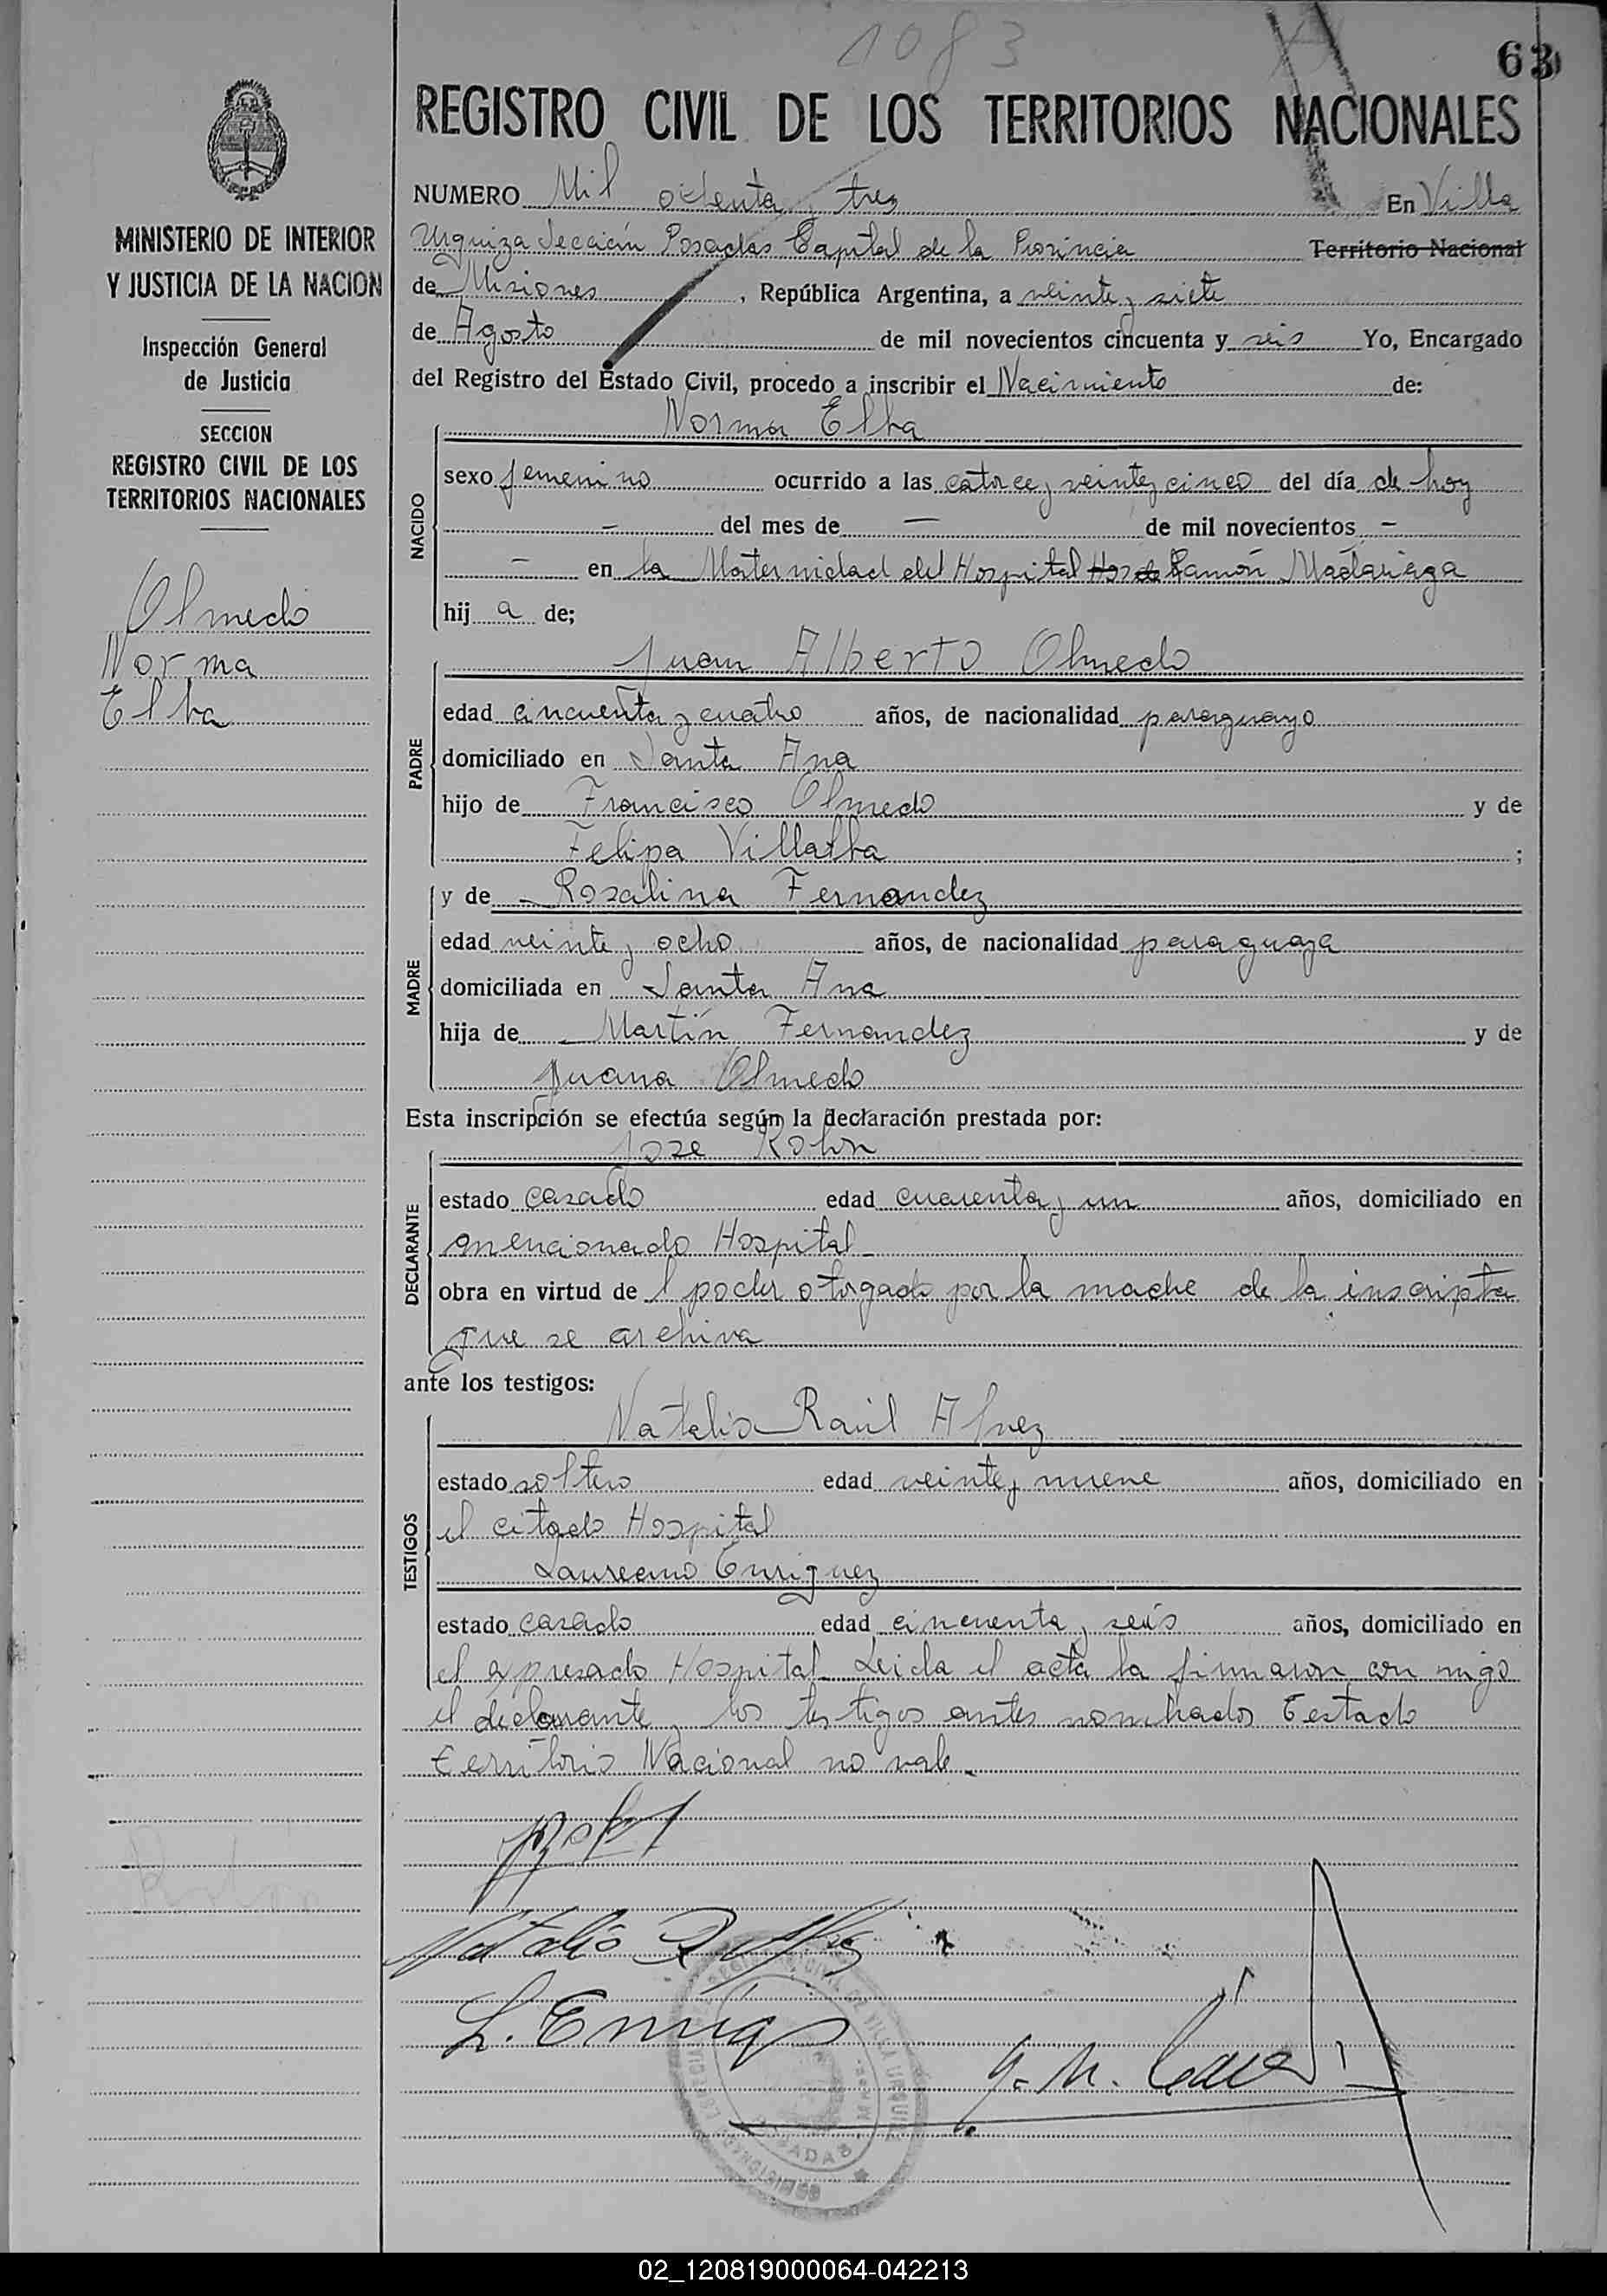 1083
63
REGISTRO CIVIL DE LOS TERRITORIOS NACIONALES
MINISTERIO DE INTERIOR
Y JUSTICIA DE LA NACION
Inspección General
de Justicia
SECCION
REGISTRO CIVIL DE LOS
TERRITORIOS NACIONALES
Olmedo
Norma
Elba
NUMERO Mil ochenta y tres En Villa
Urquiza Sección Posadas Capital de la Provincia Territorio Nacional
de Misiones, República Argentina, a veinte y siete
de Agosto de mil novecientos cincuenta y seis Yo, Encargado
del Registro del Estado Civil, procedo a inscribir el Nacimiento de:
NACIDO
Norma Elba
sexo femenino ocurrido a las catorce y veinte y cinco del día de hoy
— del mes de — de mil novecientos —
— en la Maternidad del Hospital Ramón Madariaga
hij a de;
PADRE
Juan Alberto Olmedo
edad cincuenta y cuatro años, de nacionalidad paraguayo
domiciliado en Santa Ana
hijo de Francisco Olmedo y de
Felipa Villalba ;
MADRE
y de Rosalina Fernandez
edad veinte y ocho años, de nacionalidad paraguaya
domiciliada en Santa Ana
hija de Martín Fernandez y de
Juana Olmedo
Esta inscripción se efectúa según la declaración prestada por:
DECLARANTE
Jose Rolon
estado casado edad cuarenta y un años, domiciliado en
mencionado Hospital
obra en virtud de l poder otorgado por la madre de la inscripta
que se archiva
ante los testigos:
TESTIGOS
Natalio Raúl
estado soltero edad veinte y nueve años, domiciliado en
el citado Hospital
Laureano Enriquez
estado casado edad cincuenta y seis años, domiciliado en
el expresado Hospital Leida el acta la firmaron con migo
el declarante y los testigos antes nombrados Testado
territorio Nacional no vale.
Natalio R
L. Enriquez
02_120819000064-042213